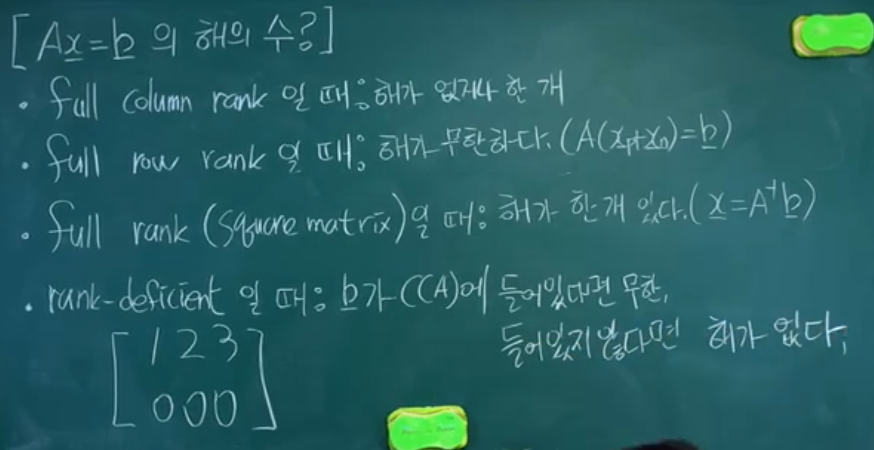 [Ax=b 의 해의 수?]
· full column rank 일 때: 해가 없거나 한 개
· full row rank 일 때: 해가 무한하다. (A(xp+xn)=b)
· full rank (square matrix)일 때: 해가 한개 있다. (x=A⁻¹b)
· rank-deficient 일 때: b가 C(A)에 들어있다면 무한,
들어있지 않다면 해가 없다,
[1 2 3
0 0 0]